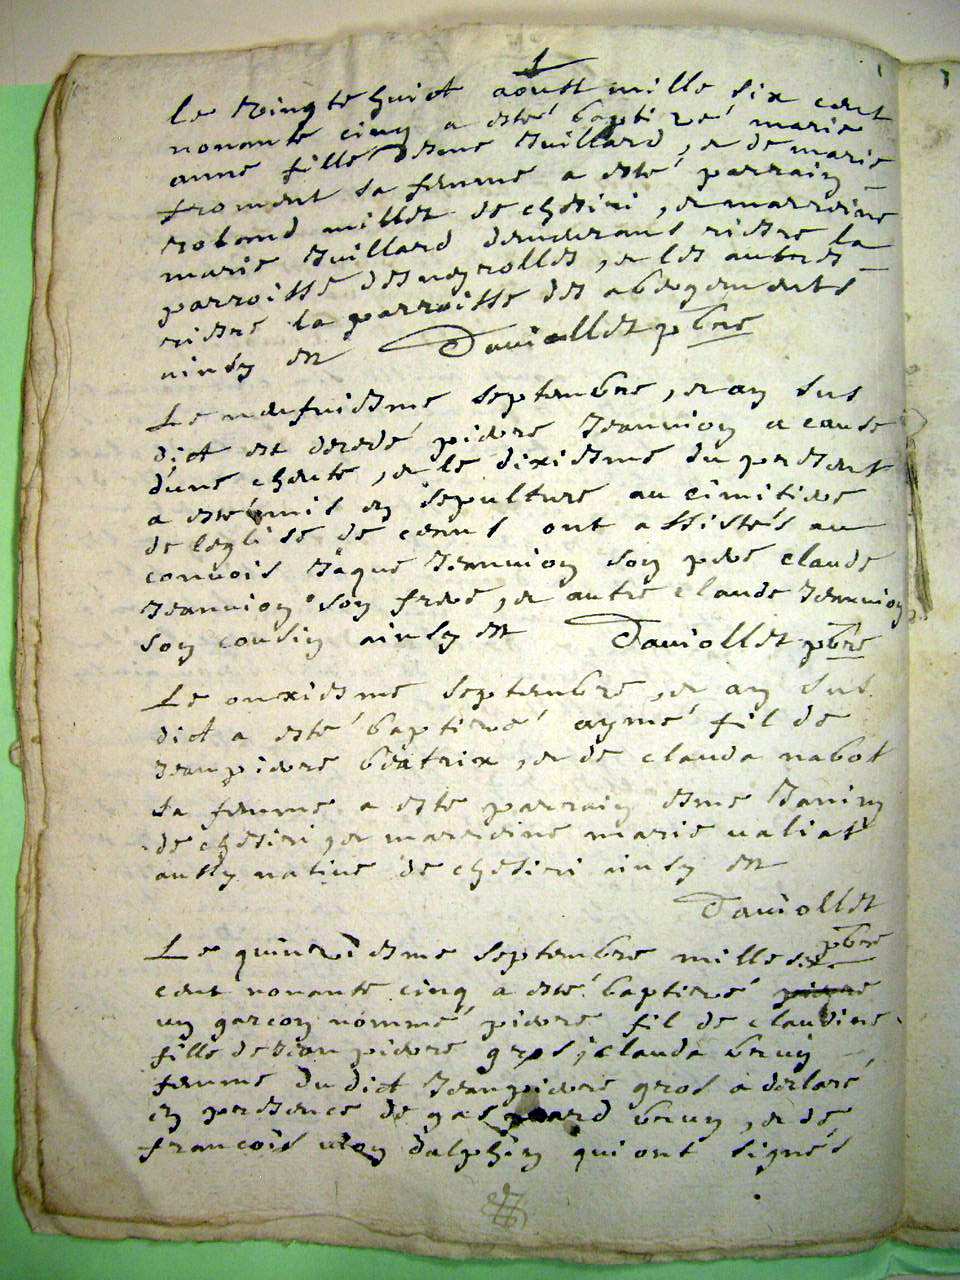 1
le vingte huict aoust mille six cent
nonante cinq a esté baptizé marie
anne fille desme Juillard, et de marie
froment sa femme a esté parrain
roland millet de chesiri, et marreine
marie Juillard demeurans riesre la
parroisse desneyrolles, et les autres
riesre la parroisse des abergements
ainsy est Daviollet pbre
Le neufuiesme septembre, et an sus
dict est decedé pierre Jeannion a cause
dune cheute, et le dixiesme du present
a esté mis en sepulture au cimitiere
de leglise de ont assistés au
convois Jâque Jeannion son pere claude
Jeannion son frere, et autre claude Jeannion
son cousin ainsy est Daviollet pbre
Le onxiesme septembre, et an sus
dict a esté baptizé aymé fil de
Jeanpierre béatrix, et de clauda nabot
sa femme a este parrain esme Janin
de chesiri, et marreine marie valiat
aussy native de chesiri ainsy est
Daviollet
pbre
Le quinziesme septembre mille six
cent nonante cinq a esté baptizé
un garcon nommé pierre fil de claudine
fille de Jean pierre gros, clauda brun
femme dudict Jeanpierre gros a declaré
en presence de gaspard brun, et de
francois dalphin qui ont signés